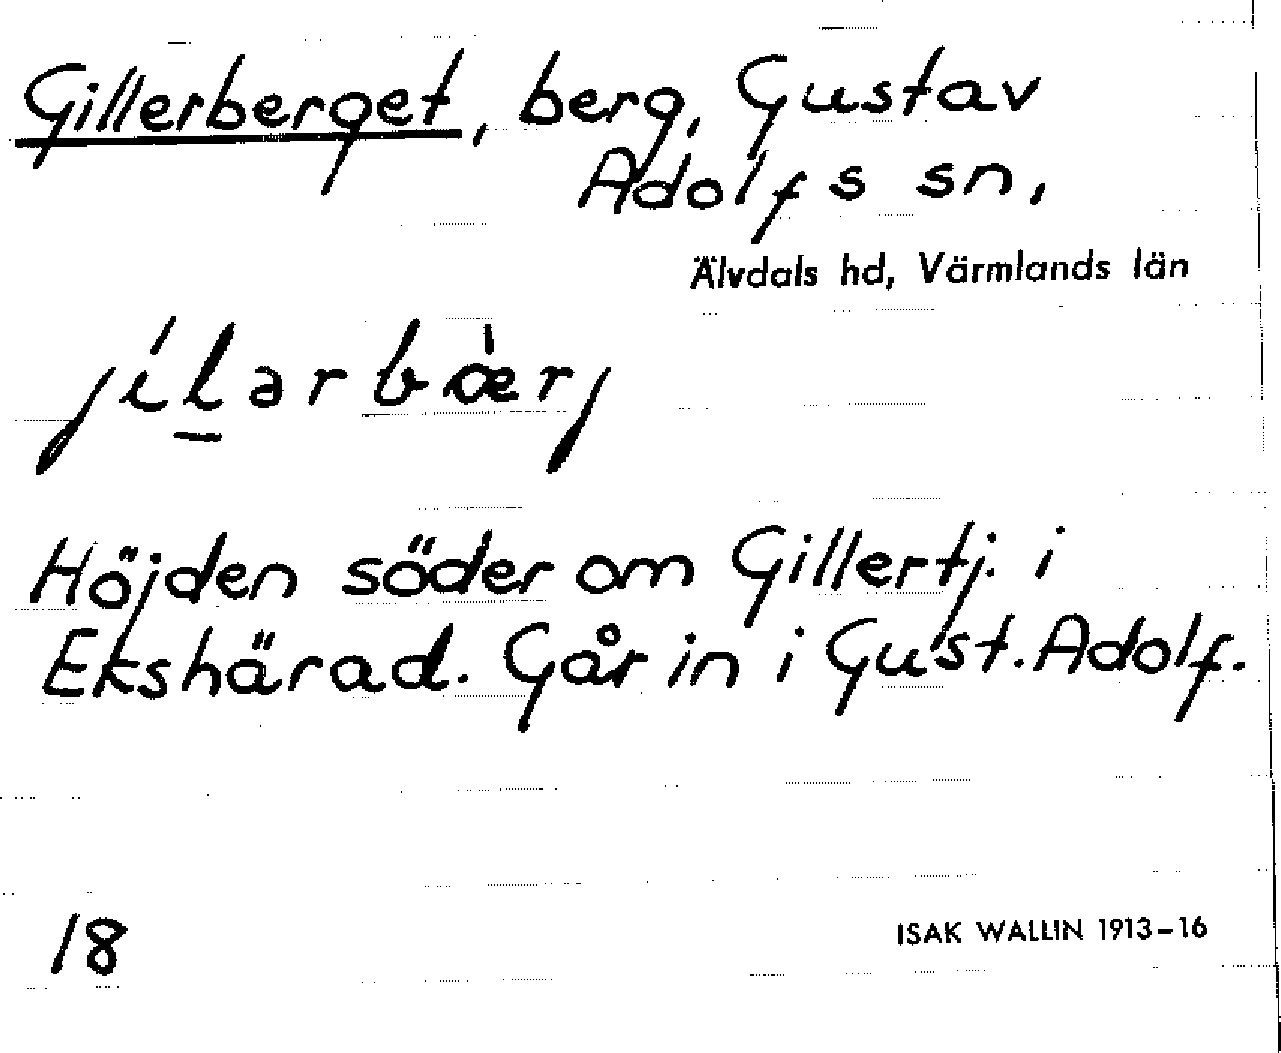 Gillerberget, berg, Gustav
Adolfs sn,
Älvdals hd, Värmlands län
jíl̠ərbæ̀rj
Höjden söder om Gillertj. i
Ekshärad. Går in i Gust. Adolf.
18
ISAK WALLIN 1913-16